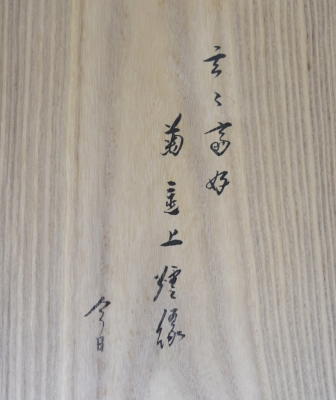 玄々斎好
菊置上爐縁
今日